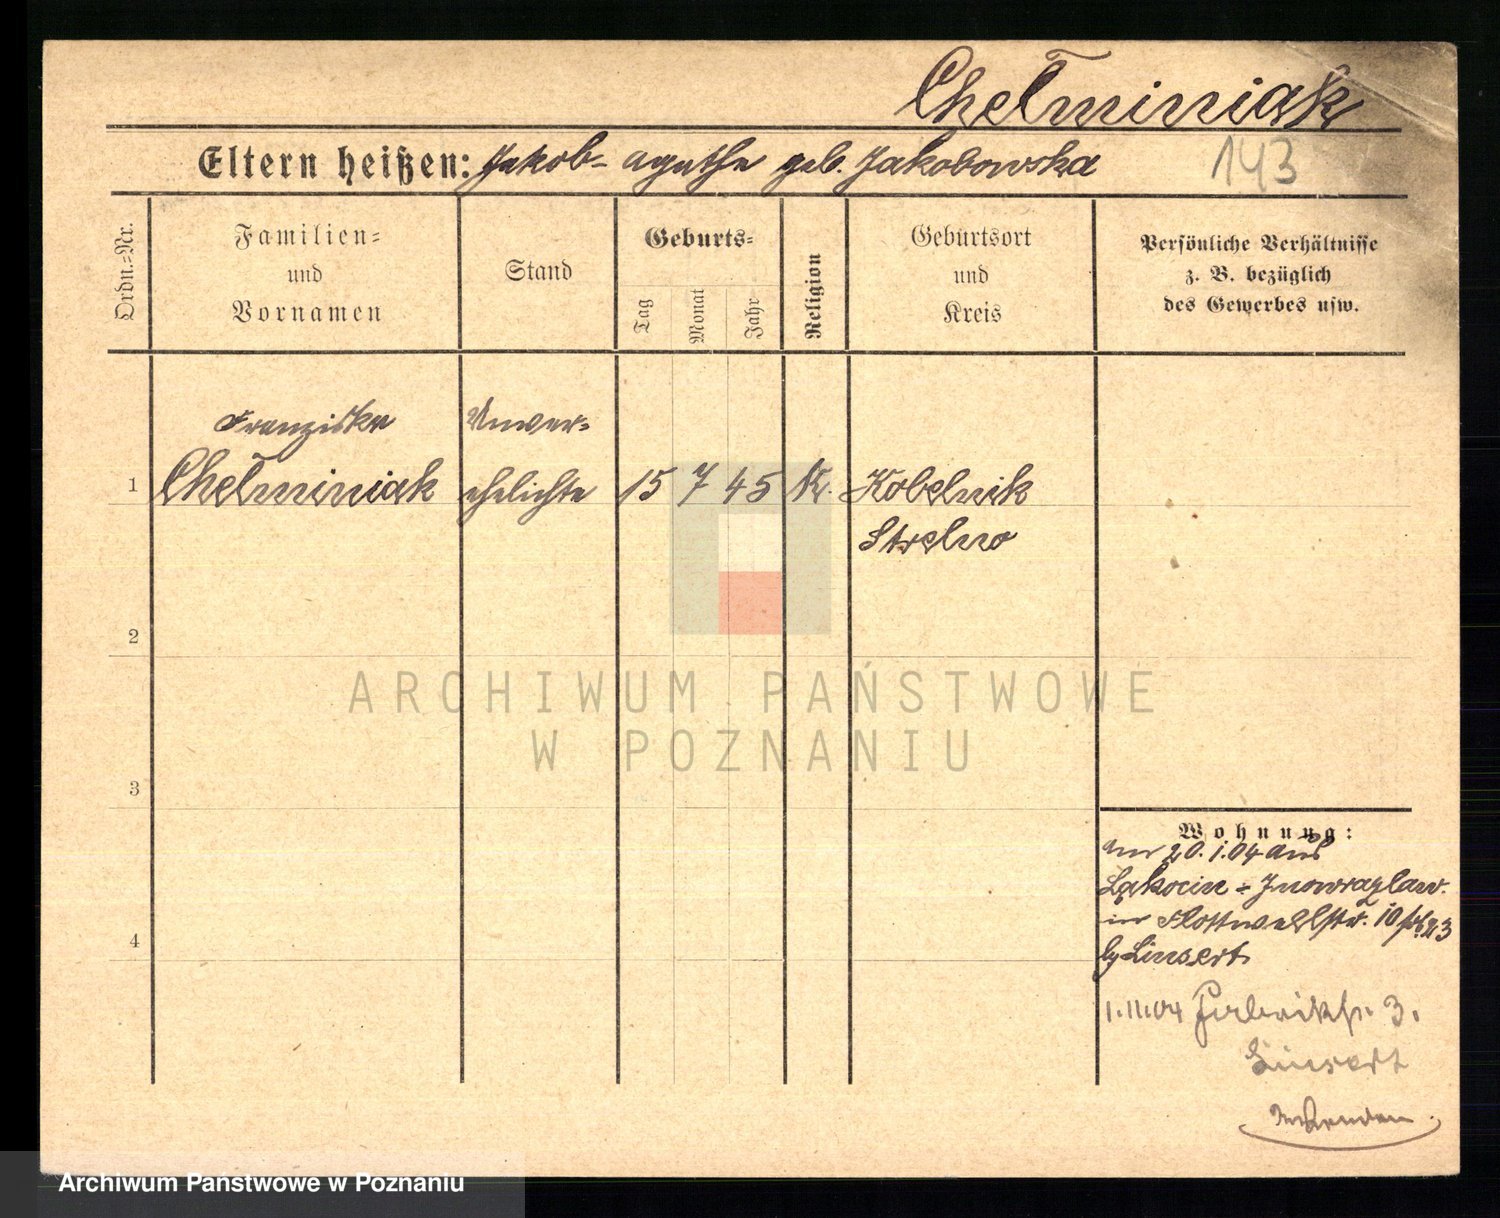 Chełminiak
Eltern heißen: Jakob - Agathe geb. Jakobowska
143
Ordn.=Nr.
Familien=
und
Vornamen
Stand
Geburts=
Tag
Monat
Jahr
Religion
Geburtsort
und
Kreis
Persönliche Verhältnisse
z. B. bezüglich
des Gewerbes usw.
Franziska Unver=
1 Chełminiak ehelichte 15 7 45 K. Kobelnik
Strelno
2
ARCHIWUM PAŃSTWOWE
W POZNANIU
3
Wohnung:
20.1.04 aus
Łąkocin = Inowrazlaw.
in Flottwellstr. 10
b/ Linsert
4
1.11.04 Fabrikstr. 3.
Linsert
Archiwum Państwowe w Poznaniu